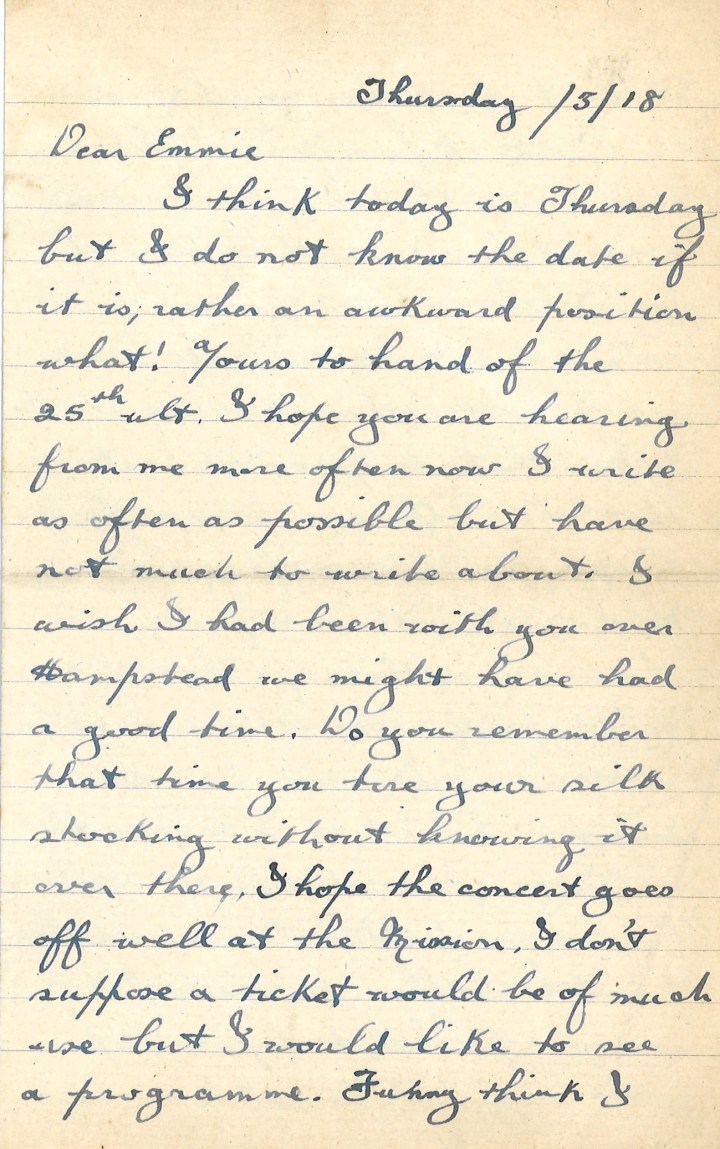 Thursday /3/18
Dear Emmie
I think today is Thursday
but I do not know the date if
it is, rather an awkward position
what! Yours to hand of the
25th ult. I hope you are hearing
from me more often now I write
as often as possible but have
not much to write about. I
wish I had been with you over
Hampstead we might have had
a good time. Do you remember
that time you tore your silk
stocking without knowing it
over there, I hope the concert goes
off well at the Mission, I don't
suppose a ticket would be of much
use but I would like to see
a programme. Funny think I